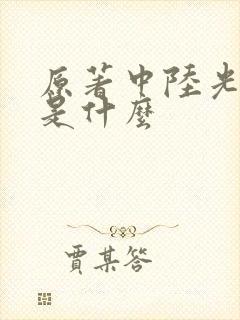 原著中陸光
是什麼
賈某答